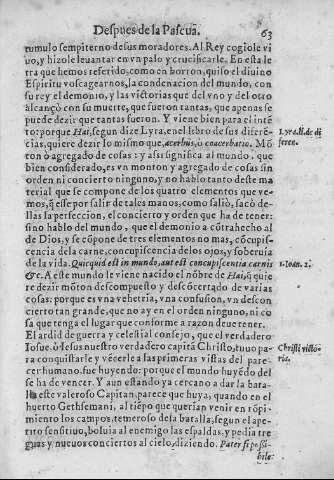 Despues de la Pascua. 63
tumulo sempiterno de sus moradores. Al Rey cogiole vi
uo, y hizole leuantar en vn palo y crucificarle. En esta le
tra que hemos referido, como en borron, quiso el diuino
Espiritu voscagearnos, la condenacion del mundo, con
su rey el demonio, y las victorias que del vno y del otro
alcançò con su muerte, que fueron tantas, que apenas se
puede dezir que tantas fueron. Y viene bien para el intẽ
to: porque Hai, segun dize Lyra, en el libro de sus diferẽ-
cias, quiere dezir lo mismo que, acerbus, ò coacerbatio. Mõ
ton ò agregado de cosas: y assi significa al mundo. que
bien considerado, es vn monton y agregado de cosas sin
orden ni concierto ninguno, y no hablo tanto deste ma
terial que se compone de los quatro elementos que ve-
mos, q̃ esse por salir de tales manos, como saliò, sacò de-
llas la perfeccion, el concierto y orden que ha de tener:
sino hablo del mundo, que el demonio a cõtrahecho al
de Dios, y se cõpone de tres elementos no mas, cõcupis-
cencia de la carne, concupiscencia de los ojos, y soberuia
de la vida. Quicquid est in mundo, aut est concupiscentia carnis
&c. A este mundo le viene nacido el nõbre de Hai, q̃ quie
re dezir mõton descompuesto y descõcertado de varias
cosas: porque es vna vehetria, vna confusion, vn descon
cierto tan grande, que no ay en el orden ninguno, ni co
sa que tenga el lugar que conforme a razon deue tener.
El ardid de guerra y celestial consejo, que el verdadero
Iosue, ò Iesus nuestro verdadero capitã Christo, tuuo pa
ra conquistarle y vẽcerle a las primeras vistas del pare-
cer humano, fue huyendo: porque el mundo huyẽdo del
se ha de vencer. Y aun estando ya cercano a dar la bata-
lla este valeroso Capitan, parece que huya, quando en el
huerto Gethsemani, al tiẽpo que querian venir en rõpi-
miento los campos, temeroso de la batalla, segun el ape-
tito sensitiuo, boluia al enemigo las espaldas, y pedia tre
guas y nueuos conciertos al cielo, diziendo. Pater si possi-
bile
Lyra li. de di
feren.
1. Ioan. 2.
Christi victo-
ria.